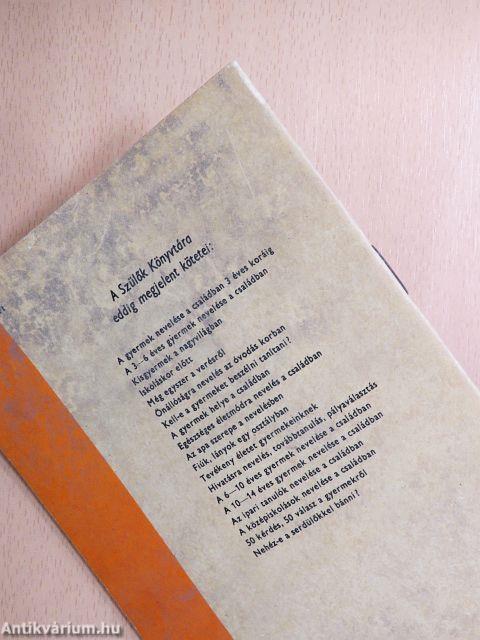 A Szülők Könyvtára
eddig megjelent kötetei:
A gyermek nevelése a családban 3 éves koráig
A 3—6 éves gyermek nevelése a családban
Kisgyermek a nagyvilágban
Iskoláskor előtt
Még egyszer a verésről
Önállóságra nevelés az óvodás korban
Kell-e a gyermeket beszélni tanítani?
A gyermek helye a családban
Egészséges életmódra nevelés a családban
Az apa szerepe a nevelésben
Fiúk, lányok egy osztályban
Tevékeny életet gyermekeinknek
Hivatásra nevelés, továbbtanulás, pályaválasztás
A 6—10 éves gyermek nevelése a családban
A 10—14 éves gyermek nevelése a családban
Az ipari tanulók nevelése a családban
A középiskolások nevelése a családban
50 kérdés, 50 válasz a gyermekről
Nehéz-e a serdülőkkel bánni?
Antikvárium.hu